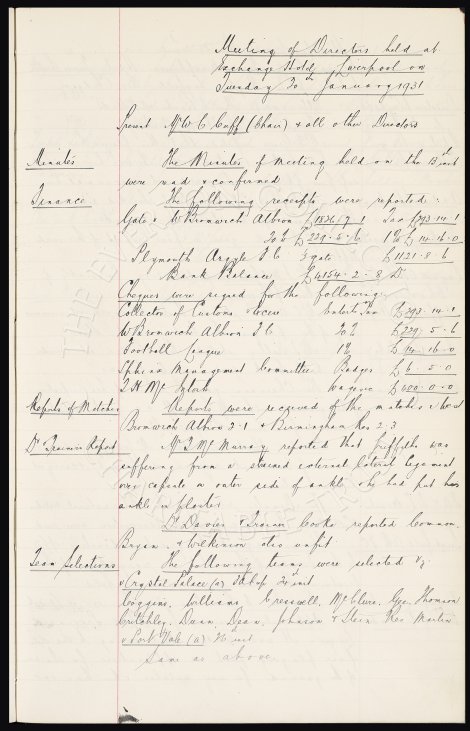 Meeting of Directors held at
Exchange Hotel, Liverpool on
Tuesday 20th January 1931
Present Mr W C Cuff (Chair) & all other Directors
Minutes The Minutes of meeting held on the 13th inst
were read & confirmed
Finance The following receipts were reported:
Gate v W Bromwich Albion £1836.19.1 Tax £293.14.1
20% £229.5.6 1% £14.16.0
Plymouth Argyle F C gate £1121.8.6
Bank Balance £4154.2.8 D
Cheques were signed for the following
Collector of Customs & Excise Entert Tax £293.14.1
W Bromwich Albion F.C. 20% £229.5.6
Football League 1% £14.16.0
Sphinx Management Committee Badges £6.5.0
T H McIntosh wages £400.0.0
Reports of Matches Reports were received of the matches v West
Bromwich Albion 2-1 & Birmingham Res 2-3
Dr & Trainers Report Mr T McMurray reported that Griffiths was
suffering from a strained external lateral ligament
over capsule on outer side of ankle & he had put his
ankle in plaster
Dr Davies & Trainer Cooke reported Common,
Bryan, & Wilkinson also unfit.
Team Selections The following teams were selected viz
v Crystal Palace (a) 24 inst
Coggins, Williams, Cresswell, McClure, Gee, Thomson
Critchley, Dunn, Dean, Johnson & Stein Res Martin
v Port Vale (a) inst
Same as above.